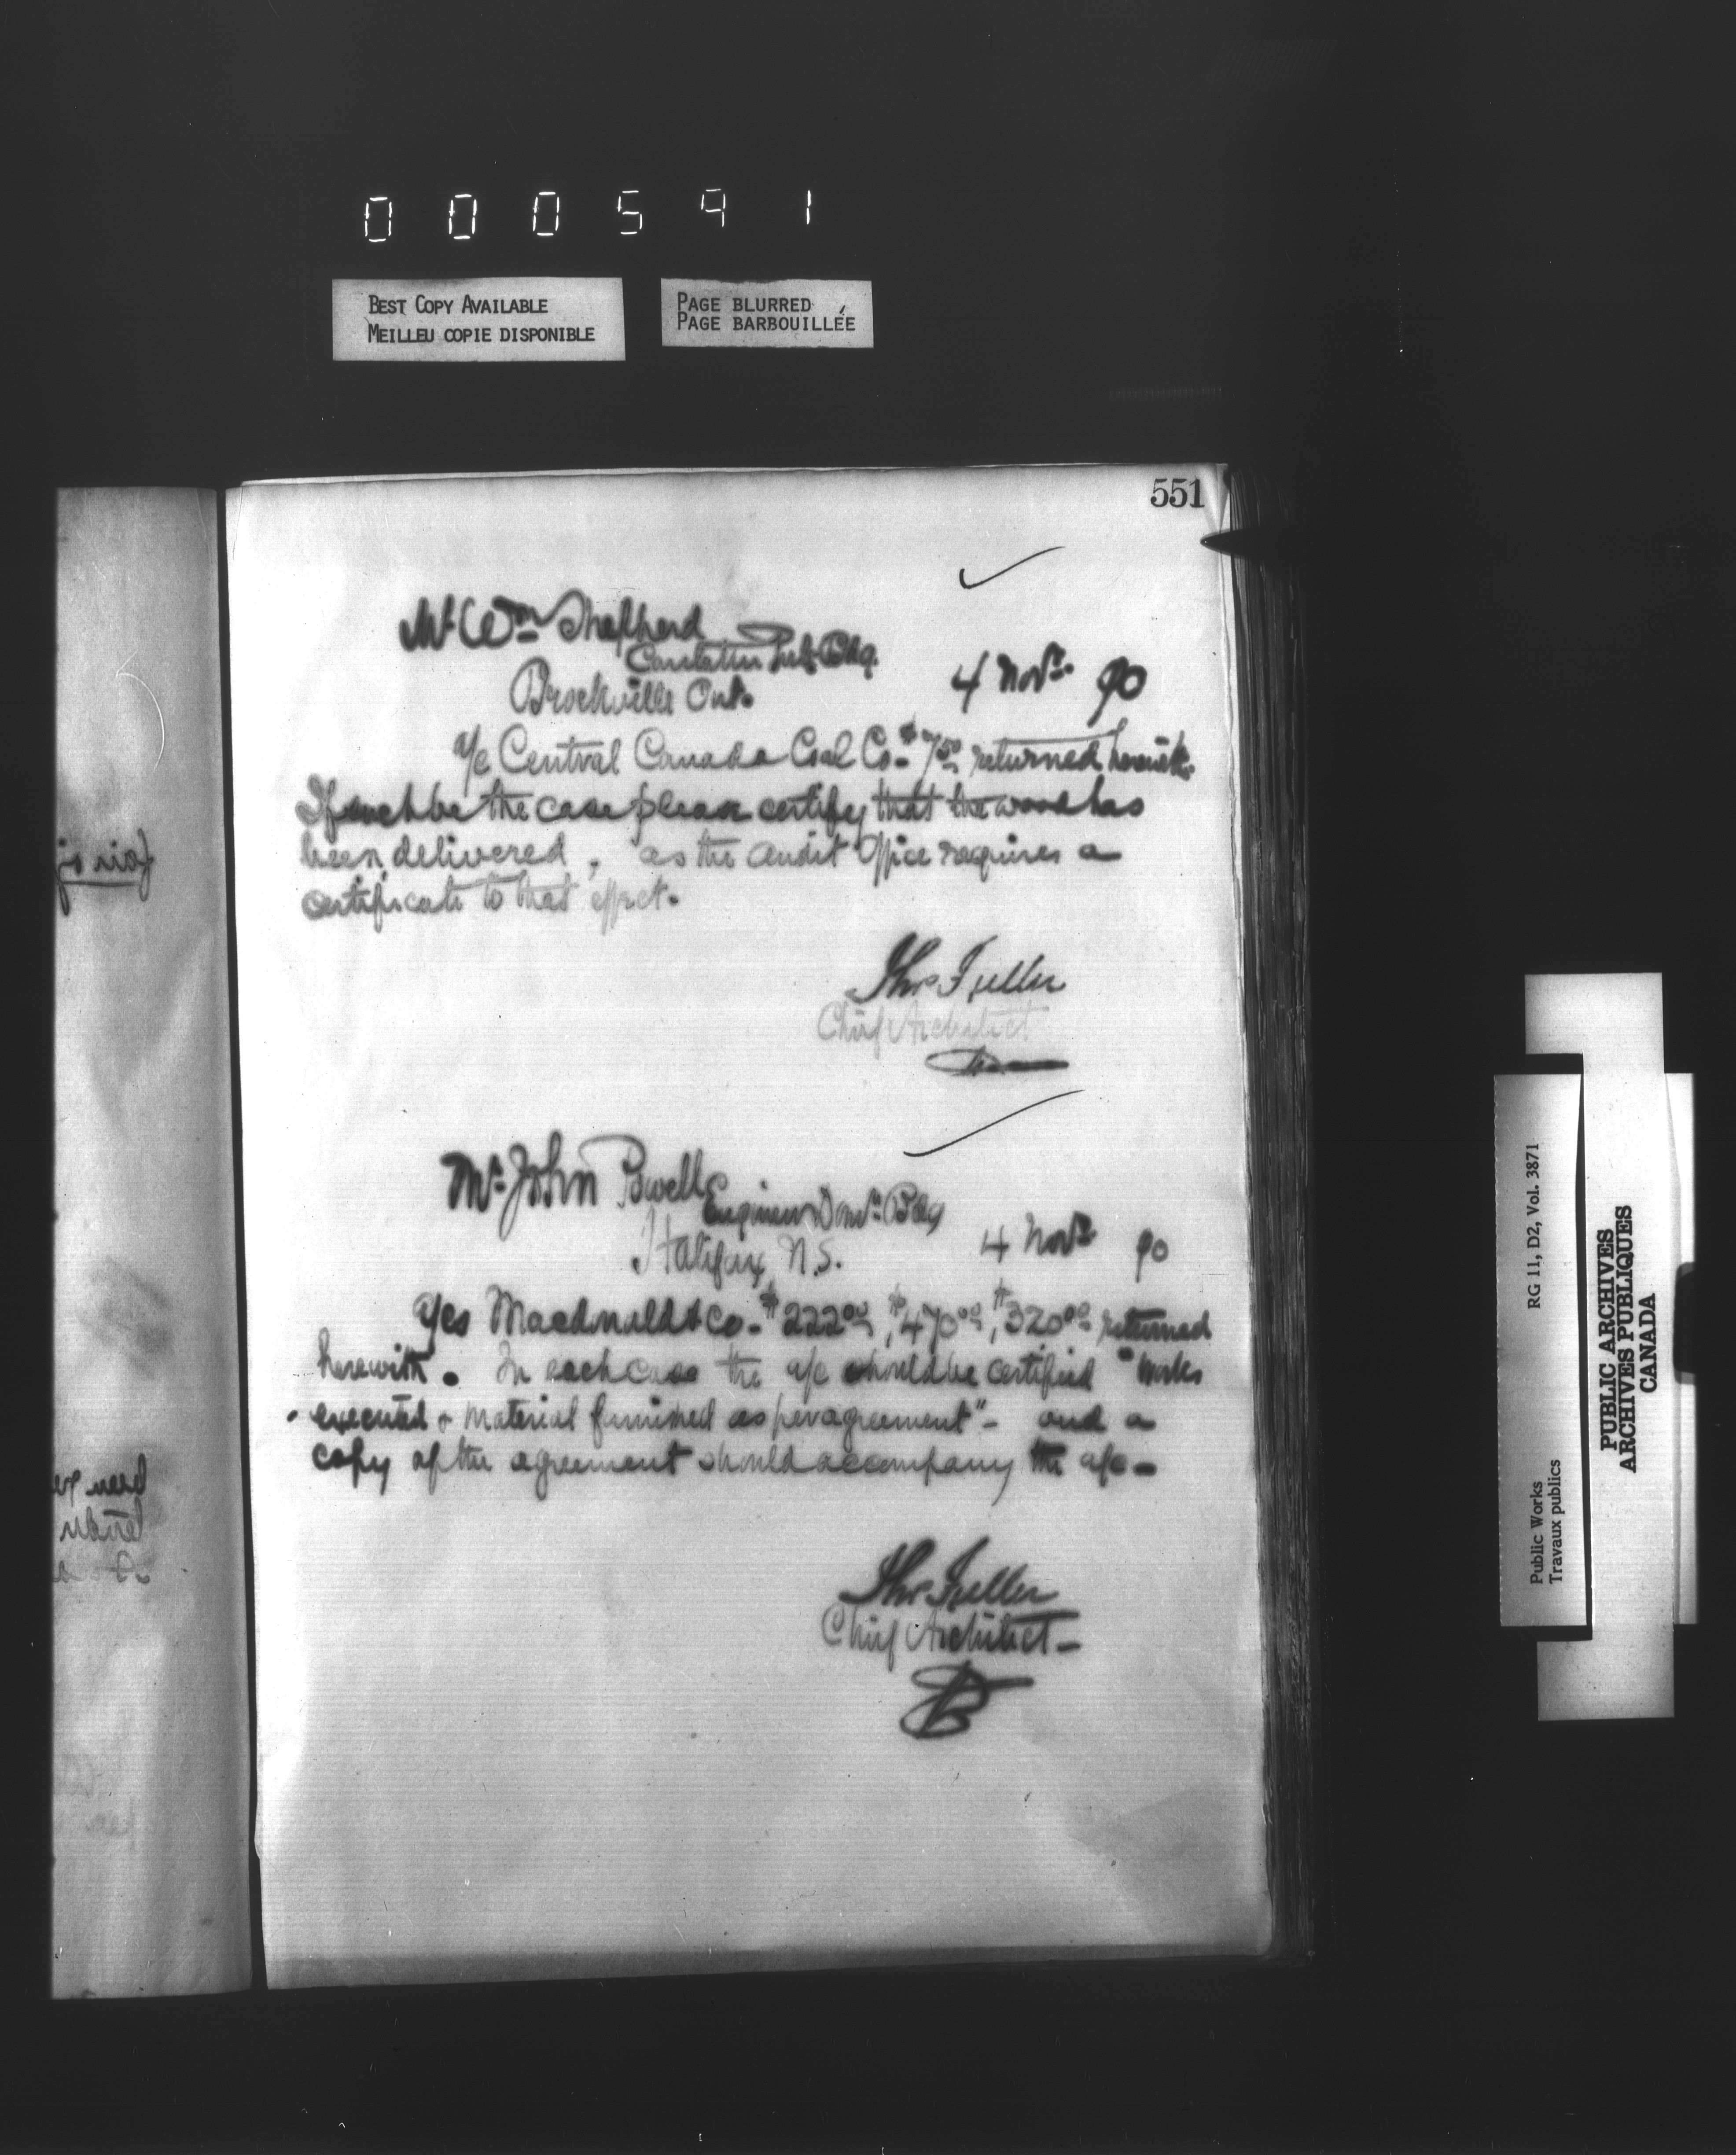 000591
BEST COPY AVAILABLE
MEILLEU COPIE DISPONIBLE
PAGE BLURRED
PAGE BARBOUILLÉE
551
Mr Wm Shepherd
Caretaker Pub. Bldg.
Brockville Ont.
4 Novr. 90
A/c Central Canada Coal Co - $7.50 returned herewith.
If such be the case please certify that the wood has
been delivered, as the Audit Office requires a
certificate to that effect.
Thos Fuller
Chief Architect
Mr. John Powell
Engineer Domn. Bldg
Halifax, N.S.
4 Novr. 90
A/cs Macdonald & Co - $222.00, $470.00, $320.00 returned
herewith. In each case the a/c should be certified "Works
executed & material furnished as per agreement" - and a
copy of the agreement should accompany the a/c -
Thos Fuller
Chief Architect -
Public Works
Travaux publics
RG 11, D2, Vol. 3871
PUBLIC ARCHIVES
ARCHIVES PUBLIQUES
CANADA